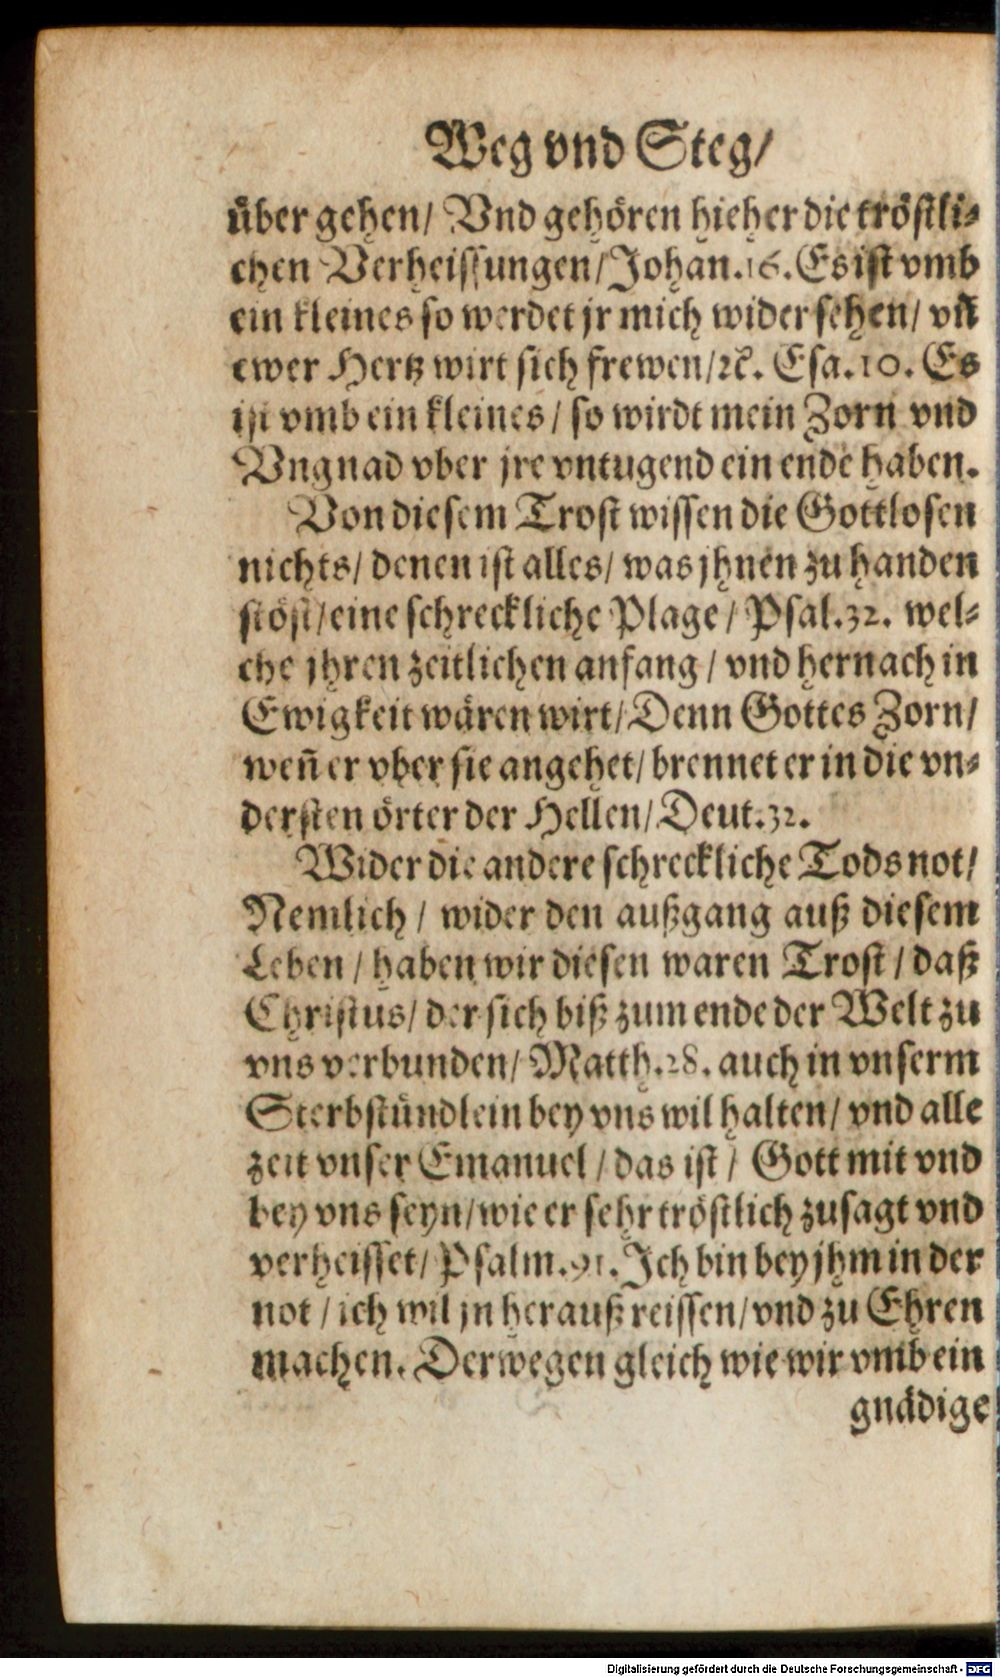 Weg vnd Steg/
über gehen/ Vnd gehören hieher die tröstli-
chen Verheissungen/ Johan. 16. Es ist vmb
ein kleines so werdet jr mich wider sehen/ vñ
ewer Hertz wirt sich frewen/ ꝛc. Esa. 10. Es
ist vmb ein kleines/ so wirdt mein Zorn vnd
Vngnad vber jre vntugend ein ende haben.
Von diesem Trost wissen die Gottlosen
nichts/ denen ist alles/ was jhnen zu handen
stöst/ eine schreckliche Plage/ Psal. 32. wel-
che jhren zeitlichen anfang/ vnd hernach in
Ewigkeit wären wirt/ Denn Gottes Zorn/
weñ er vber sie angehet/ brennet er in die vn-
dersten örter der Hellen/ Deut. 32.
Wider die andere schreckliche Todsnot/
Nemlich/ wider den außgang auß diesem
Leben/ haben wir diesen waren Trost/ daß
Christus/ der sich biß zum ende der Welt zu
vns verbunden/ Matth. 28. auch in vnserm
Sterbstündlein bey vns wil halten/ vnd alle
zeit vnser Emanuel/ das ist/ Gott mit vnd
bey vns seyn/ wie er sehr tröstlich zusagt vnd
verheisset/ Psalm. 91. Ich bin bey jhm in der
not/ ich wil jn herauß reissen/ vnd zu Ehren
machen. Derwegen gleich wie wir vmb ein
gnädige
Digitalisierung gefördert durch die Deutsche Forschungsgemeinschaft - DFG